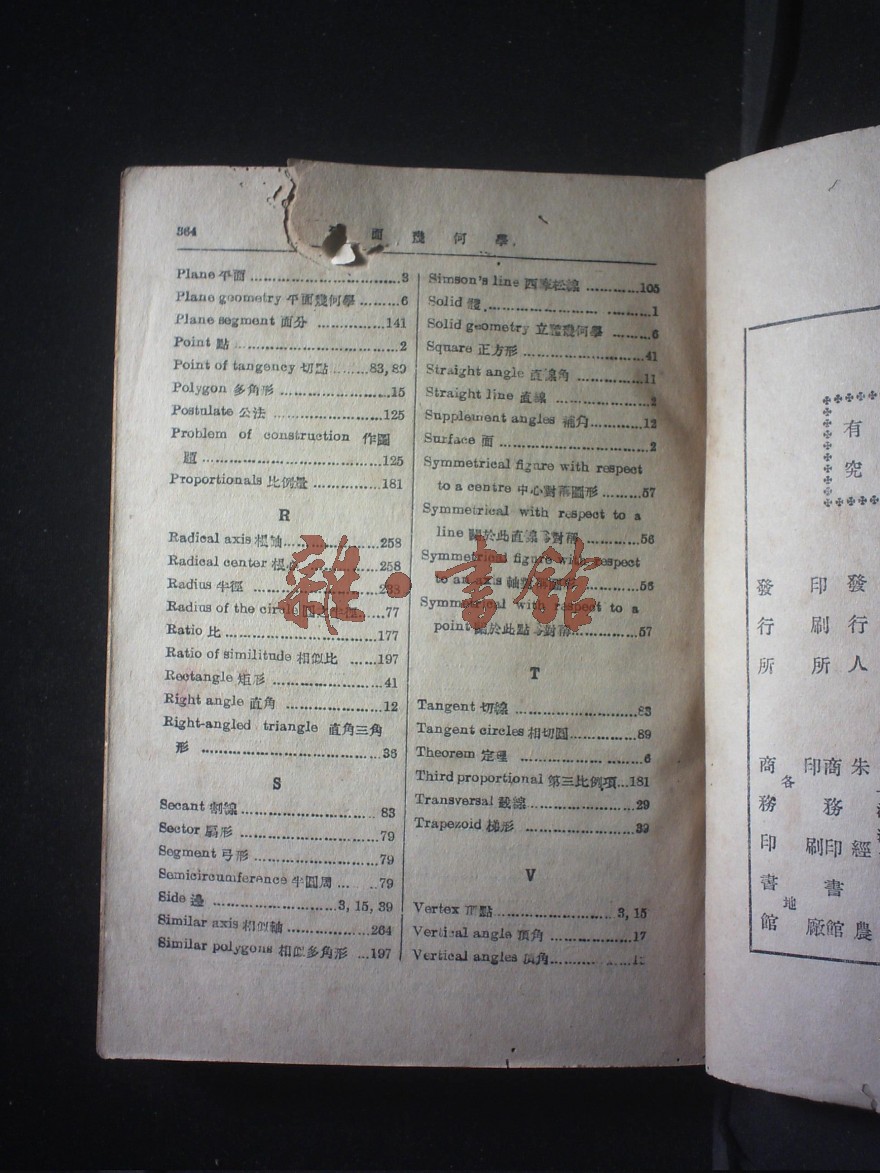 364
面 幾 何 學
Plane 平面 ................................3
Plane geometry 平面幾何學 .........6
Plane segment 面分 ..............141
Point 點 ..................................2
Point of tangency 切點 ........83, 89
Polygon 多角形 .......................15
Postulate 公法 ......................125
Problem of construction 作圖
題 ..................................125
Proportionals 比例量 ..............181
R
Radical axis 根軸...................258
Radical center 根心 ...............258
Radius 半徑 .........................
Radius of the circle ......77
Ratio 比 ..............................177
Ratio of similitude 相似比 ......197
Rectangle 矩形 .......................41
Right angle 直角 .....................12
Right-angled triangle 直角三角
形 ..................................36
S
Secant 割線 ..........................83
Sector 扇形 ..........................79
Segment 弓形 ........................79
Semicircumference 半圓周 .... ..79
Side 邊 ........................3, 15, 39
Similar axis 相似軸 ...............264
Similar polygons 相似多角形 ...197
Simson's line 西摩松線 ...........105
Solid 體..................................1
Solid geometry 立體幾何學 ........6
Square 正方形 ........................41
Straight angle 直線角 ..............11
Straight line 直線 ...................2
Supplement angles 補角............12
Surface 面 ..............................2
Symmetrical figure with respect
to a centre 中心對稱圖形 .........57
Symmetrical with respect to a
line 關於此直線為對稱 ............56
Symmetrical figure with respect
to an axis 軸對稱圖形 ............56
Symmetrical with respect to a
point 關於此點為對稱...............57
T
Tangent 切線 ........................83
Tangent circles 相切圓.............89
Theorem 定理 .........................6
Third proportional 第三比例項...181
Transversal 截線 ....................29
Trapezoid 梯形 ......................39
V
Vertex 頂點........................3, 15
Vertical angle 頂角 .................17
Vertical angles 頂角................
雜·書館
有
究
發 行 人 朱 經 農
印 刷 所 商 務 印 書 館 印 刷 廠
發 行 所 商 務 印 書 館
各 地